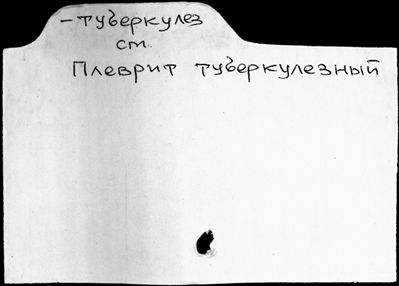 -туберкулез
ст.
Плеврит туберкулезный